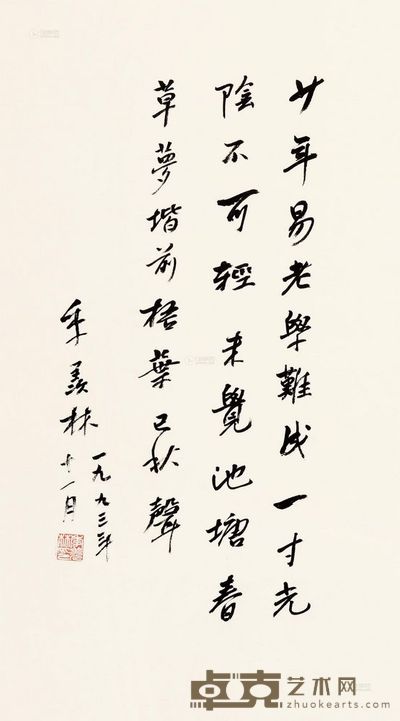 少年易老學難成一寸光
陰不可輕未覺池塘春
草夢堦前梧葉已秋聲
季羨林
一九九三年
十一月
卓克艺术网
zhuokearts.com